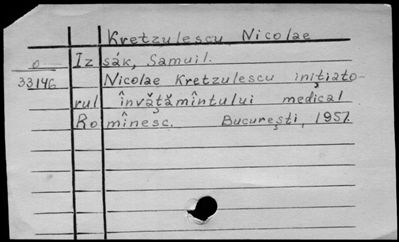 Kretzulescu Nicolae
0 Izsák, Samuil.
33146 Nicolae Kretzulescu iniţiato-
rul învăţămîntului medical
Romînesc. Bucureşti, 1957